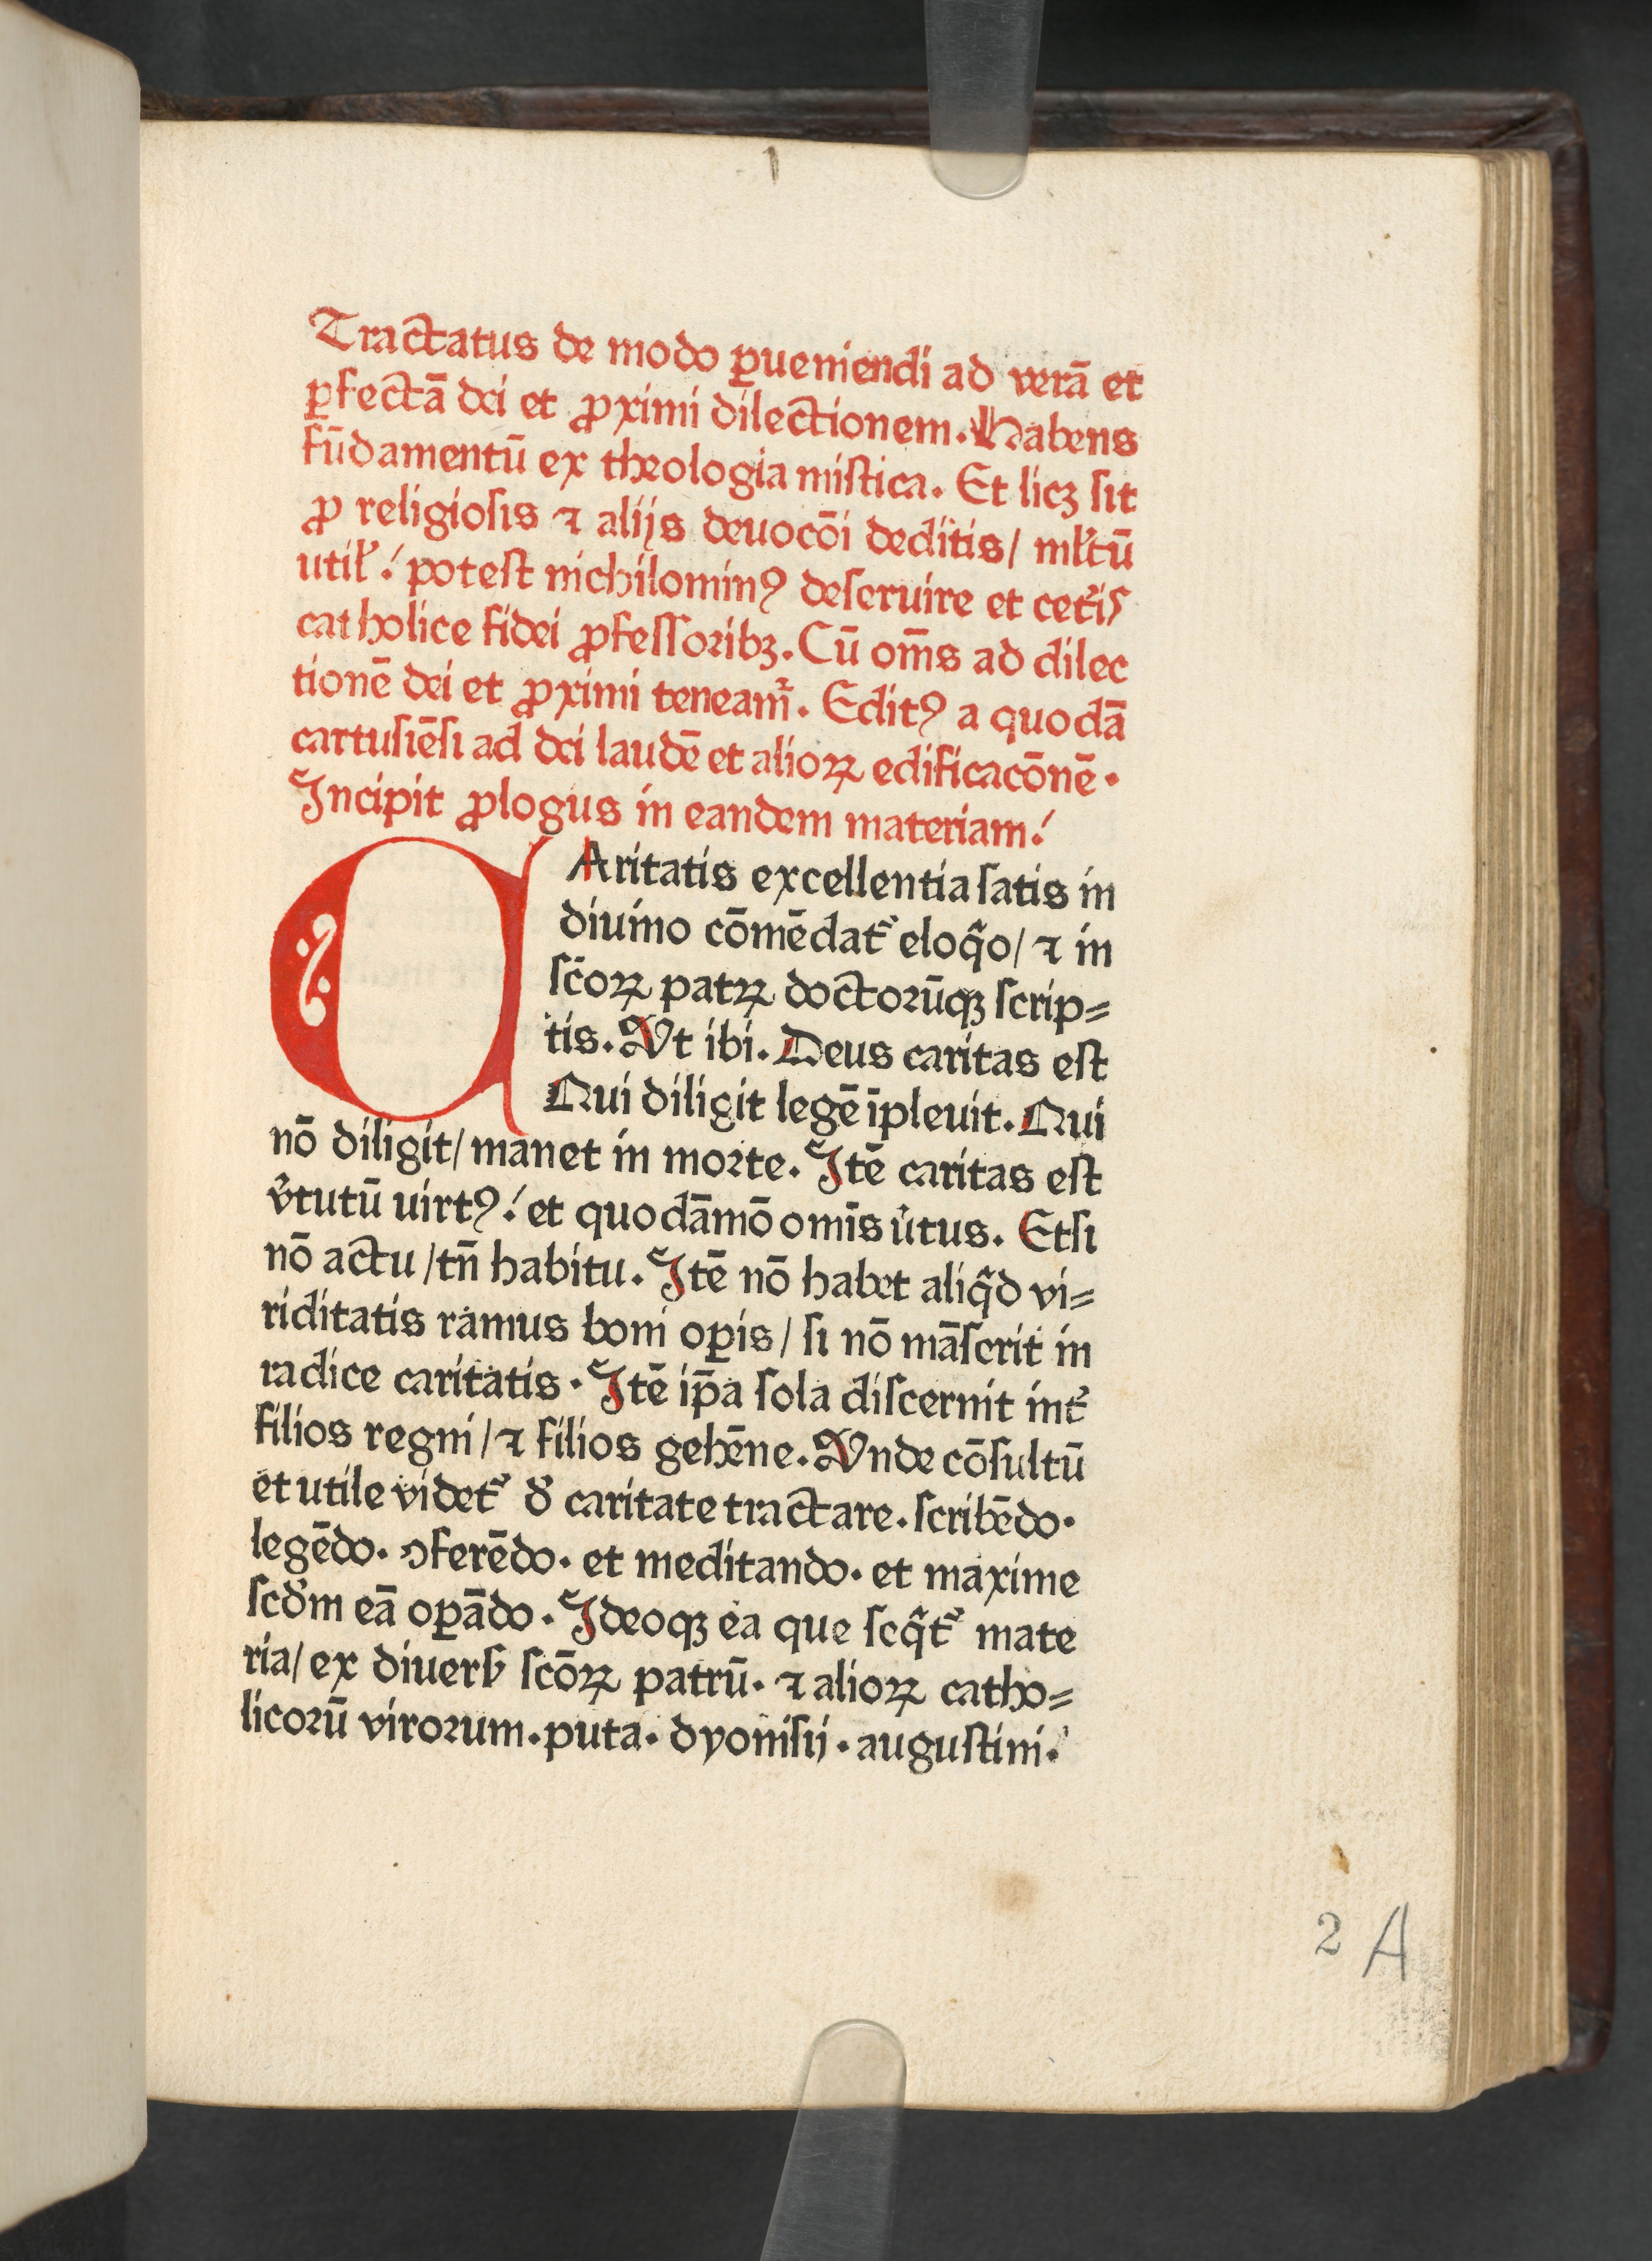 1
Tractatus de modo ꝑueniendi ad verā et
ꝑfectā dei et ꝓximi dilectionem. Habens
fūdamentū ex theologia miſtica. Et licꝫ ſit
ꝓ religioſis ⁊ alijs deuocōi deditis/ ml̓tū
util̓ ./ poteſt nichilominꝰ deſeruire et cet̓iſ
catholice fidei ꝓfeſſoribꝫ. Cū om̄s ad dilec
tionē dei et ꝓximi teneam̄. Editꝰ a quodā
cartuſiēſi ad dei laudē et alioꝝ edificacōnē.
Incipit ꝓlogus in eandem materiam ./
CAritatis excellentia ſatis in
diuino cōmēdat᷑ eloq̄o/ ⁊ in
ſc̄oꝝ patꝝ doctorūqꝫ scrip⸗
tis. Vt ibi. Deus caritas eſt
Qui diligit legē īpleuit. Qui
nō diligit/ manet in morte. Itē caritas eſt
v̓tutū uirtꝰ ./ et quodāmō omīs u̓tus. Etſi
nō actu /tn̄ habitu. Itē nō habet aliq̄d vi⸗
riditatis ramus boni oꝑis/ ſi nō māſerit in
radice caritatis. Itē ip̄a ſola diſcernit int̓
filios regni/ ⁊ filios gehēne. Vnde cōſultū
et utile videt᷑ d̓ caritate tractare. ſcribēdo.
legēdo. ꝯferēdo. et meditando. et maxime
ſcd̓m eā oꝑādo. Ideoqꝫ ea que ſeq̄t᷑ mate
ria/ ex diuerſ̓ ſcōꝝ patrū. ⁊ alioꝝ catho⸗
licorū virorum. puta. dyoniſij. auguſtini.
2 A